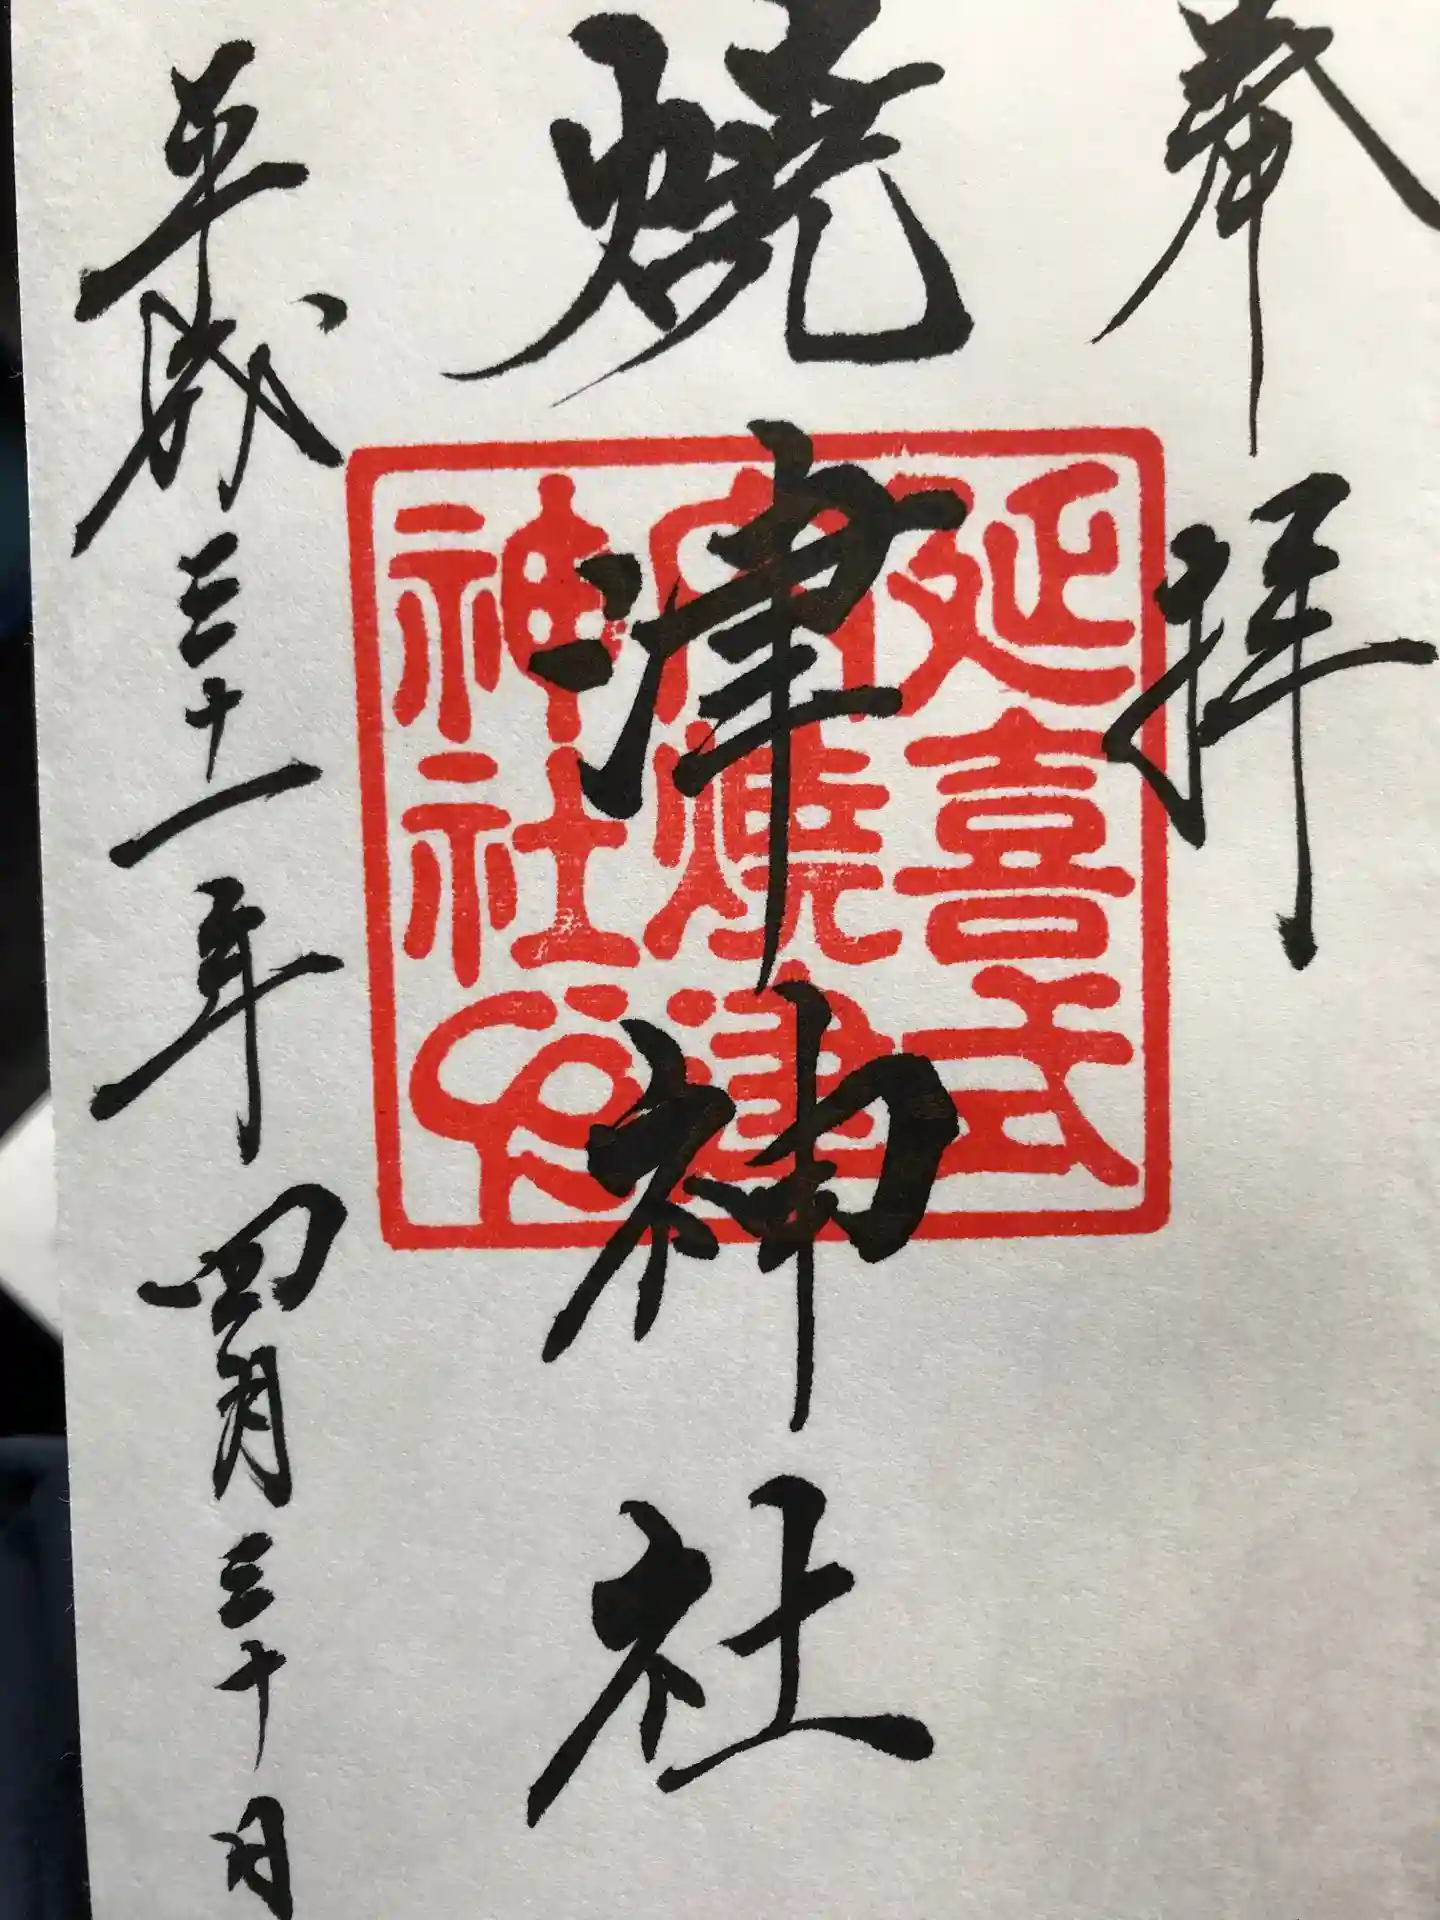 奉拝
焼津神社
延喜式
内焼津
神社印
平成三十一年四月三十日